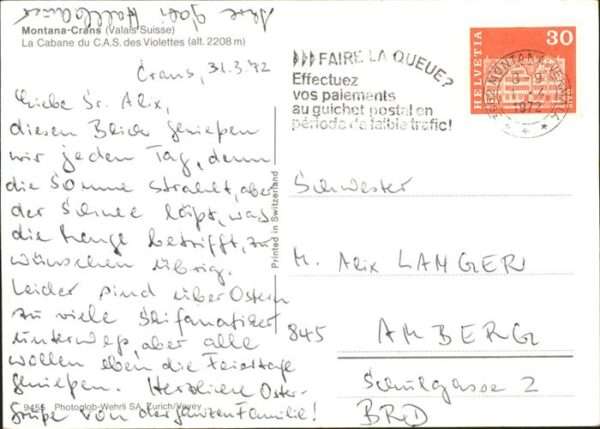 Ihre Gabi Hallbauer
Montana-Crans (Valais Suisse)
La Cabane du C.A.S. des Violettes (alt. 2208 m)
Crans, 31.3.72
Liebe Sr. Alix,
diesen Blick genießen
wir jeden Tag, denn
die Sonne strahlt, aber
der Schnee läßt, was
die Menge betrifft, zu
wünschen übrig.
Leider sind über Ostern
zu viele Skifanatiker
unterwegs, aber alle
wollen eben die Feiertage
genießen. Herzliche Oster-
grüße von der ganzen Familie!
9455 Photoglob-Wehrli SA, Zurich/Vevey
Printed in Switzerland
FAIRE LA QUEUE?
Effectuez
vos paiements
au guichet postal en
période de faible trafic!
HELVETIA 30
3962 MONTANA-VERMALA
1972
Schwester
M. Alix LANGER
845 AMBERG
Schulgasse 2
BRD